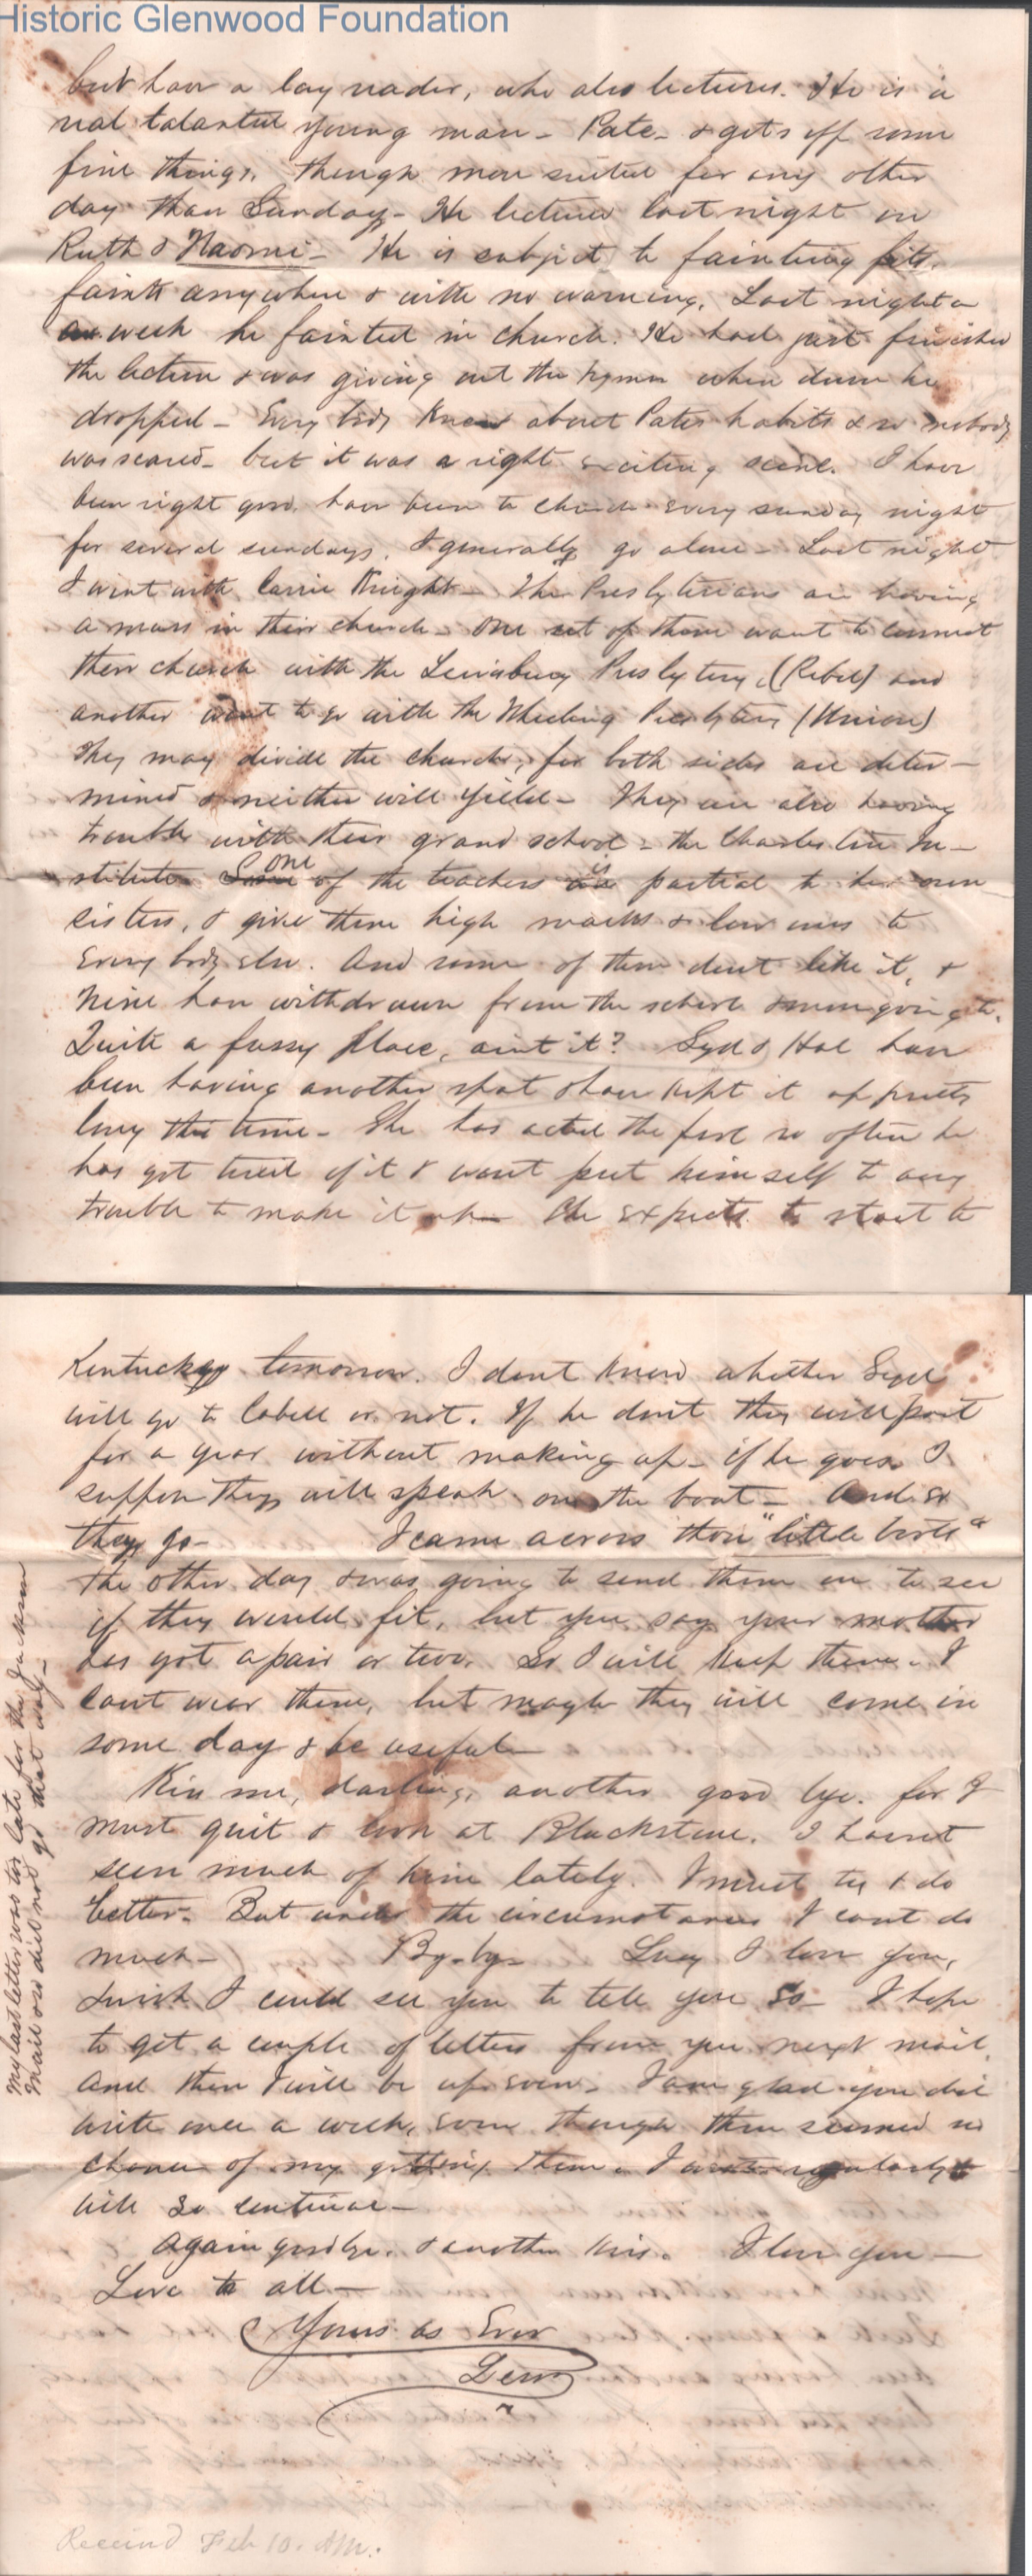 Historic Glenwood Foundation
but have a lay reader, who also lectures. He is a
real talanted young man - Pate - & gets off some
fine things, though more suited for any other
day than Sunday - He lectured last night on
Ruth & Naomi - He is subject to fainting fits,
faints anywhere & with no warning. Last night a
week he fainted in church. He had just finished
the lecture & was giving out the hymn when down he
dropped - Every body knew about Pates habits & so nobody
was scared - but it was a right exciting scene. I have
been right good, have been to church every sunday night
for several sundays. I generally go alone - Last night
I went with Carrie Knight - The Presbyterians are having
a muss in their church - One set of them want to connect
their church with the Lewisburg Presbytery, (Rebel) and
another want to go with the Wheeling Presbytery (Union)
They may divide the church, for both sides are deter-
mined & neither will yield - They are also having
trouble with their grand school - the Charleston In-
stitute. Some one of the teachers is partial to her own
sisters, & give them high marks & low ones to
every body else. And some of them dont like it, &
nine have withdrawn from the school & more going to.
Quite a fussy place, aint it? Syd & Hal have
been having another spat & have kept it up pretty
long this time - She has acted the fool so often he
has got tired of it & wont put himself to any
trouble to make it up - She expects to start to
Kentucky tomorrow. I dont know whether Syd
will go to Cabell or not. If he dont they will part
for a year without making up - if he goes I
suppose they will speak on the boat - And so
they go - I came across those "little boots"
the other day & was going to send them on to see
if they would fit, but you say your mother
has got a pair or two. So I will keep them - I
cant wear them, but maybe they will come in
some day & be useful -
Kiss me, darling, another good bye. for I
must quit & look at Blackstone. I havent
seen much of him lately. I must try & do
better - But under the circumstances I cant do
much - By-by - Lucy I love you,
& wish I could see you to tell you so - I hope
to get a couple of letters from you next mail.
And then I will be up even - I am glad you did
write once a week, even though there seemed no
chance of my getting them. I write regularly &
will so continue -
Again goodbye, & another kiss. I love you -
Love to all -
Yours as Ever
My last letter was too late for the
Mail and did not go that way -
Received Feb 10.